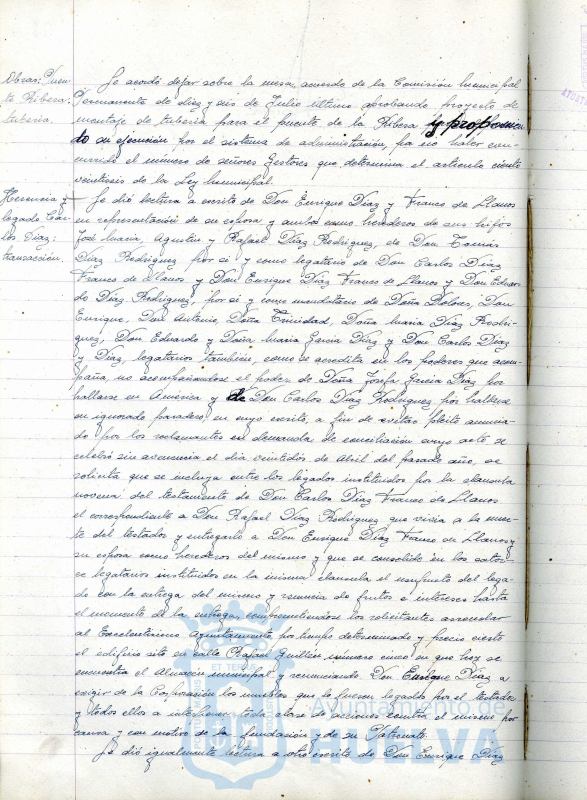 Obras: Puen-
te Ribera:
tubería.
Se acordó dejar sobre la mesa, acuerdo de la Comisión Municipal
Permanente de diez y seis de Julio último aprobando proyecto de
montaje de tubería para el puente de la Ribera y proponien
do su ejecución por el sistema de administración, por no haber con-
currido el número de señores Gestores que determina el artículo ciento
veintiseis de la Ley Municipal.
Herencia y
legado Car-
los Díaz:
transacción.
Se dió lectura a escrito de Don Enrique Díaz y Franco de Llanos
en representación de su esposa y ambos como herederos de sus hijos
José María, Agustín y Rafael Díaz Rodríguez, de Don Tomás
Díaz Rodríguez por sí y como legatario de Don Carlos Díaz
Franco de Llanos y Don Enrique Díaz Franco de Llanos y Don Eduar
do Díaz Rodríguez, por sí y como mandatario de Doña Dolores, Don
Enrique, Don Antonio, Doña Trinidad, Doña María Díaz Rodrí-
guez, Don Eduardo y Doña María García Díaz y Don Carlos Díaz
y Díaz, legatarios también, como se acredita en los poderes que acom-
paña, no acompañándose el poder de Doña Josefa García Díaz por
hallarse en América y de Don Carlos Díaz Rodríguez por hallarse
en ignorado paradero, en cuyo escrito, a fin de evitar pleito anuncia-
do por los reclamantes en demanda de conciliación cuyo acto se
celebró sin avenencia el día veintidós de Abril del pasado año, se
solicita que se incluya entre los legados instituidos por la cláusula
novena del testamento de Don Carlos Díaz Franco de Llanos
el correspondiente a Don Rafael Díaz Rodríguez que vivía a la muer-
te del testador y entregarlo a Don Enrique Díaz Franco de Llanos y
su esposa como herederos del mismo y que se consolide en los cator-
ce legatarios instituidos en la misma cláusula el usufructo del lega-
do con la entrega del mismo y renuncia de frutos e intereses hasta
el momento de la entrega, comprometiéndose los solicitantes a arrendar
al Excelentísimo Ayuntamiento por tiempo determinado y precio cierto
el edificio sito en calle Rafael Guillén número cinco en que hoy se
encuentra el Almacén municipal y renunciando Don Enrique Díaz a
exigir de la Corporación los muebles que le fueron legados por el testador
y todos ellos a interponer toda clase de acciones contra el mismo por
causa y con motivo de la fundación y de su Patronato.
Se dió igualmente lectura a otro escrito de Don Enrique Díaz
Ayuntamiento de
HUELVA